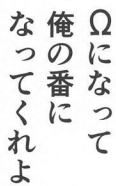 Ωになって
俺の番に
なってくれよ